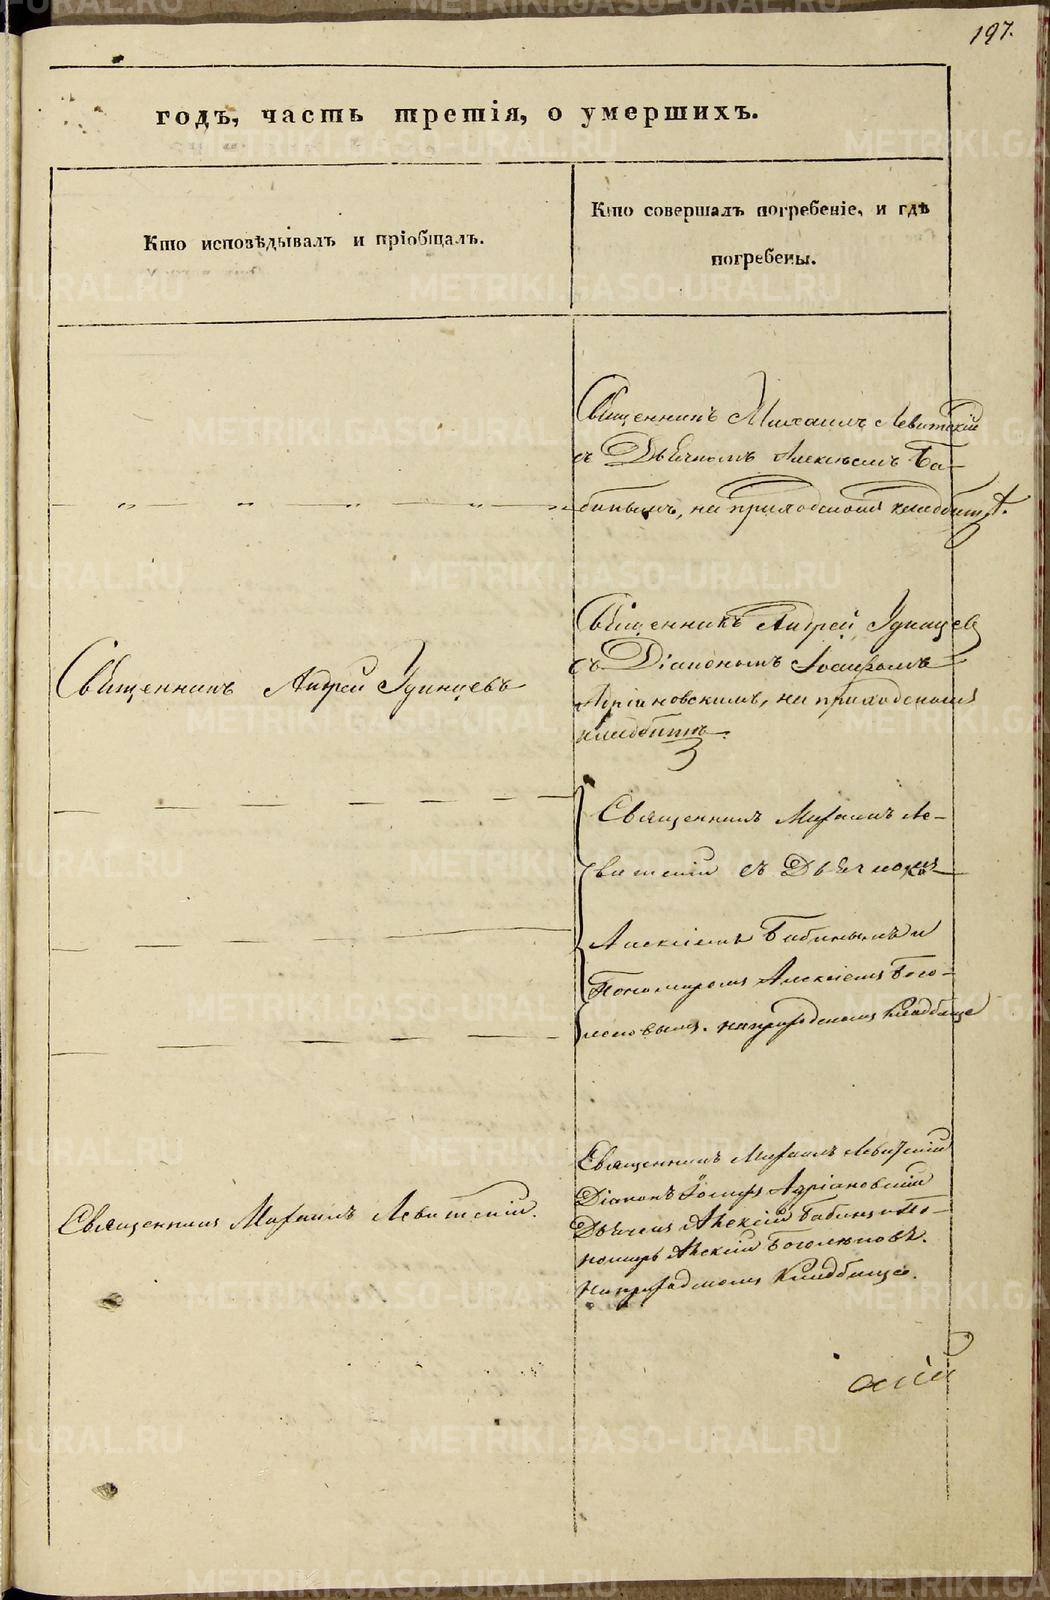 197.
годъ, часть третія, о умершихъ.
Кто исповѣдывалъ и пріобщалъ.
Кто совершалъ погребеніе, и гдѣ
погребены.
Священникъ Михаилъ Левитскій
съ Дьячкомъ Алексѣемъ Ба-
бинымъ, на приходскомъ кладбищѣ.
Священникъ Андрей Удинцевъ
Священникъ Андрей Удинцевъ
съ Діакономъ Іосифомъ
Адріановскимъ, на приходскомъ
кладбищѣ.
Священникъ Михаилъ Ле-
витскій съ Дьячкомъ
Алексіемъ Бабинымъ и
Пономаремъ Алексіемъ Бого-
леповымъ. на приходскомъ кладбище
Священникъ Михаилъ Левитскій.
Священникъ Михаилъ Левитскій
Діаконъ Іосифъ Адріановскій
Дьячекъ Алексій Бабинъ и По-
номарь Алексій Боголеповъ.
На приходскомъ Кладбище.